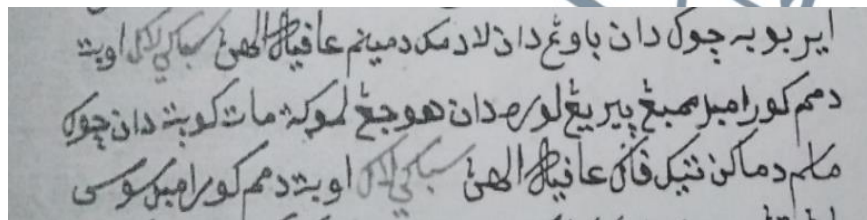 اير بوبه چوک دان باوغ دان لاد مک دمينم عافية الهن سباکي لاک اوبت
دمم کور امبل سمبغ پيريغ لوره دان هوجغ لموکه مات کوبت دان چوک
ماسم دماکن تيک فاکي عافية الهن سباکي لاک اوبت دمم کور امبل سوسى